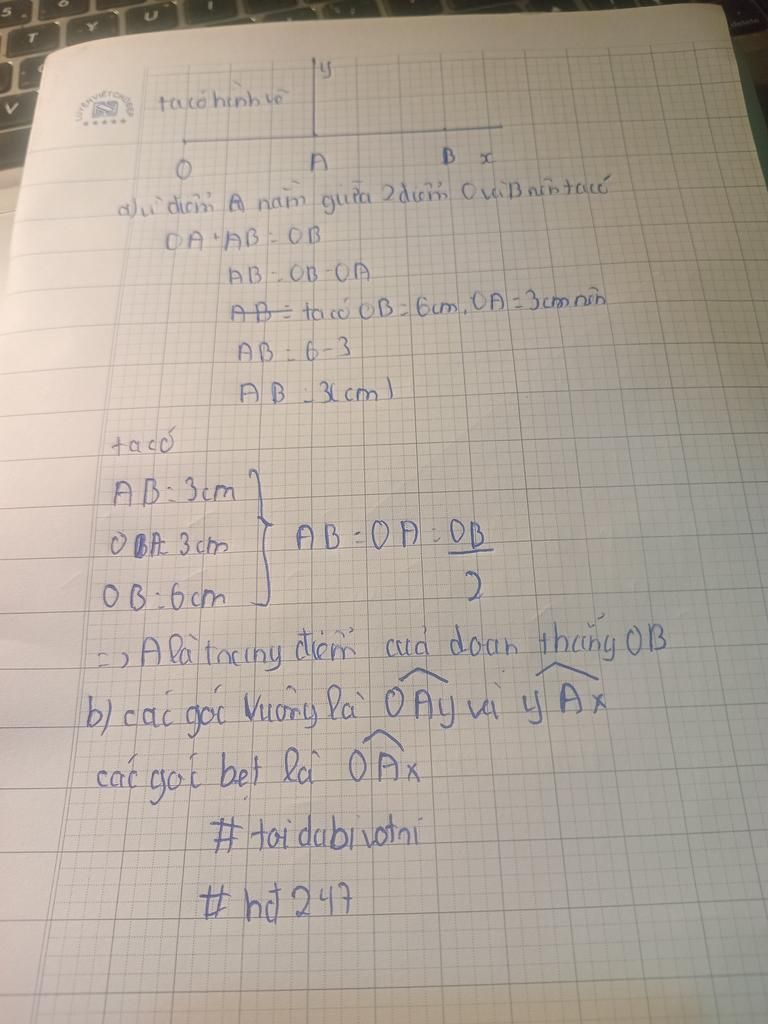 LUYỆN VIẾT CHỮ ĐẸP
N
ta có hình vẽ
y
O
A
B
x
a) vì điểm A nằm giữa 2 điểm O và B nên ta có
OA + AB = OB
AB = OB - OA
AB = ta có OB = 6cm, OA = 3cm nên
AB = 6 - 3
AB = 3(cm)
ta có
AB = 3cm
OA = 3cm
OB = 6cm
AB = OA = OB
2
=> A là trung điểm của đoạn thẳng OB
b) các góc vuông là OAy và yAx
các góc bẹt là OAx
# toidabivotni
# hđ 247